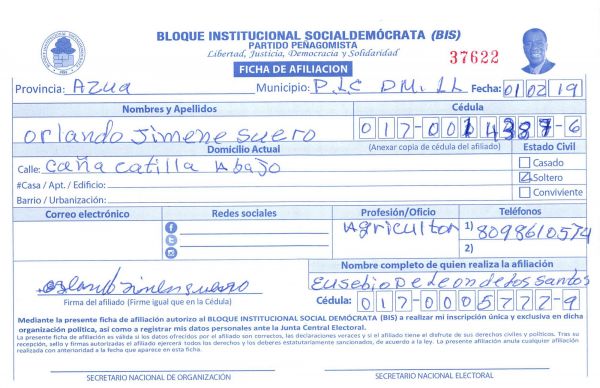 BLOQUE INSTITUCIONAL SOCIALDEMÓCRATA (BIS)
PARTIDO PEÑAGOMISTA
Libertad, Justicia, Democracia y Solidaridad
37622
FICHA DE AFILIACION
Provincia: AZUA Municipio: P.L.C DM. LL Fecha: 01/02/19
Nombres y Apellidos Cédula
Orlando Jimene Suero 017-0014387-6
Domicilio Actual (Anexar copia de cédula del afiliado) Estado Civil
Calle: Caña Catilla Abajo Casado
#Casa / Apt. / Edificio: Soltero
Barrio / Urbanización: Conviviente
Correo electrónico Redes sociales Profesión/Oficio Teléfonos
Agricultor 1) 8098610574
2)
Nombre completo de quien realiza la afiliación
Eusebio De Leon de los Santos
Firma del afiliado (Firme igual que en la Cédula) Cédula: 017-0005772-9
Mediante la presente ficha de afiliación autorizo al BLOQUE INSTITUCIONAL SOCIAL DEMÓCRATA (BIS) a realizar mi inscripción única y exclusiva en dicha
organización política, así como a registrar mis datos personales ante la Junta Central Electoral.
La presente ficha de afiliación es válida si los datos ofrecidos por el afiliado son correctos, las declaraciones veraces y si el afiliado tiene el disfrute de sus derechos civiles y políticos. Tras su
recepción, sello y firmas autorizadas el afiliado ejercerá todos los derechos y los deberes estatutariamente sancionados, de acuerdo a la ley. La presente afiliación anula cualquier afiliación
realizada con anterioridad a la fecha que aparece en esta ficha.
SECRETARIO NACIONAL DE ORGANIZACIÓN SECRETARIO NACIONAL ELECTORAL